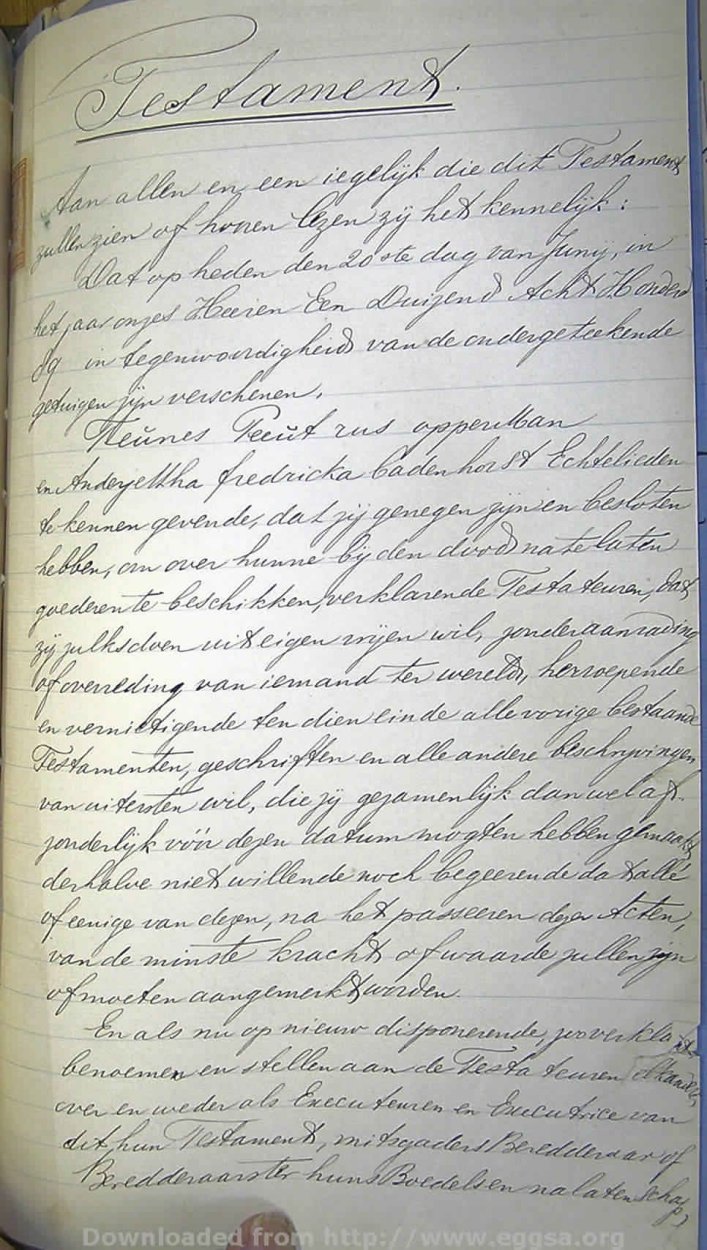 Testament.
Aan allen en een iegelijk die dit Testament
zullen zien of horen lezen zij het kennelijk:
Dat op heden den 20ste dag van Junij, in
het jaar onzes Heeren Een Duizend Acht Honderd
in tegenwoordigheid van de ondergeteekende
getuigen zijn verschenen,
Teunes opperman
en fredricka badenhorst Echtelieden
te kennen gevende, dat zij genegen zijn en besloten
hebben, om over hunne bij den dood na te laten
goederen te beschikken, verklarende Testateuren, dat
zij zulks doen uit eigen vrijen wil, zonder aanrading
of overreding van iemand ter wereld, herroepende
en vernietigende ten dien einde alle vorige bestaande
Testamenten, geschriften en alle andere beschryvingen
van uitersten wil, die zij gezamenlijk dan wel af-
zonderlijk vóór dezen datum mogten hebben gemaakt
derhalve niet willende noch begeerende dat alle
of eenige van dezen, na het passeeren dezer Acten,
van de minste kracht of waarde zullen zijn
of moeten aangemerkt worden.
En als nu op nieuw disponerende, zoo verkla
benoemen en stellen aan de Testateuren
over en weder als Executeuren en Executrice van
dit hun Testament, mitsgaders Beredderaar of
Beredderaarster huns Boedels en nalatenschap,
Downloaded from http://www.eggsa.org